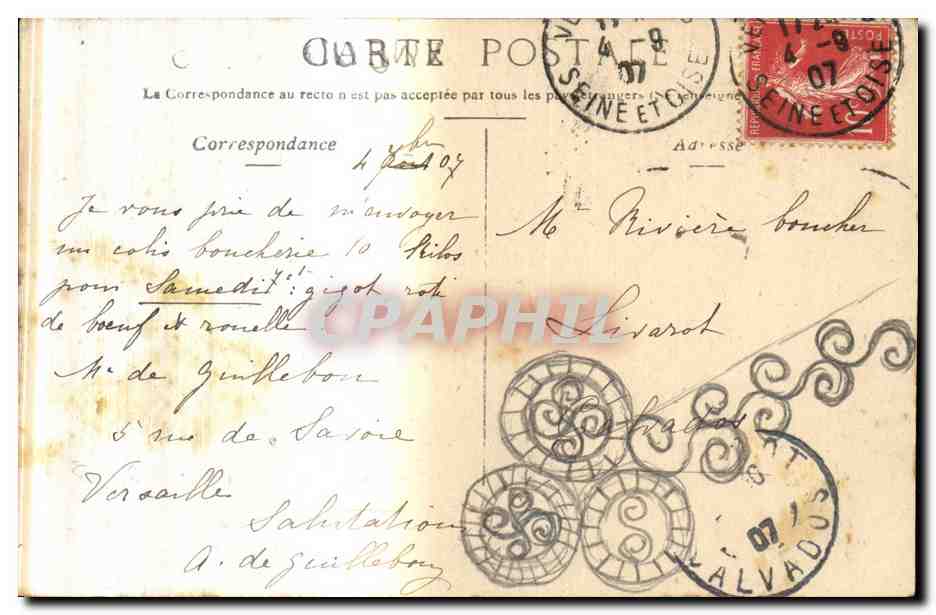 CARTE POSTALE
La Correspondance au recto n'est pas acceptée par tous les pays étrangers (Se renseigner
Correspondance
Adresse
4 7bre 07
Je vous prie de m'envoyer
un colis boucherie 10 kilos
pour Samedi 7 ct: gigot roti
de bœuf et rouelle
Me de Guillebon
5 rue de Savoie
Versaille
Salutation
A. de Guillebon
Mr Rivière boucher
Livarot
Calvados
4 -9
07
SEINE ET OISE
4 -9
07
SEINE ET OISE
10
CPAPHIL
07
CALVADOS